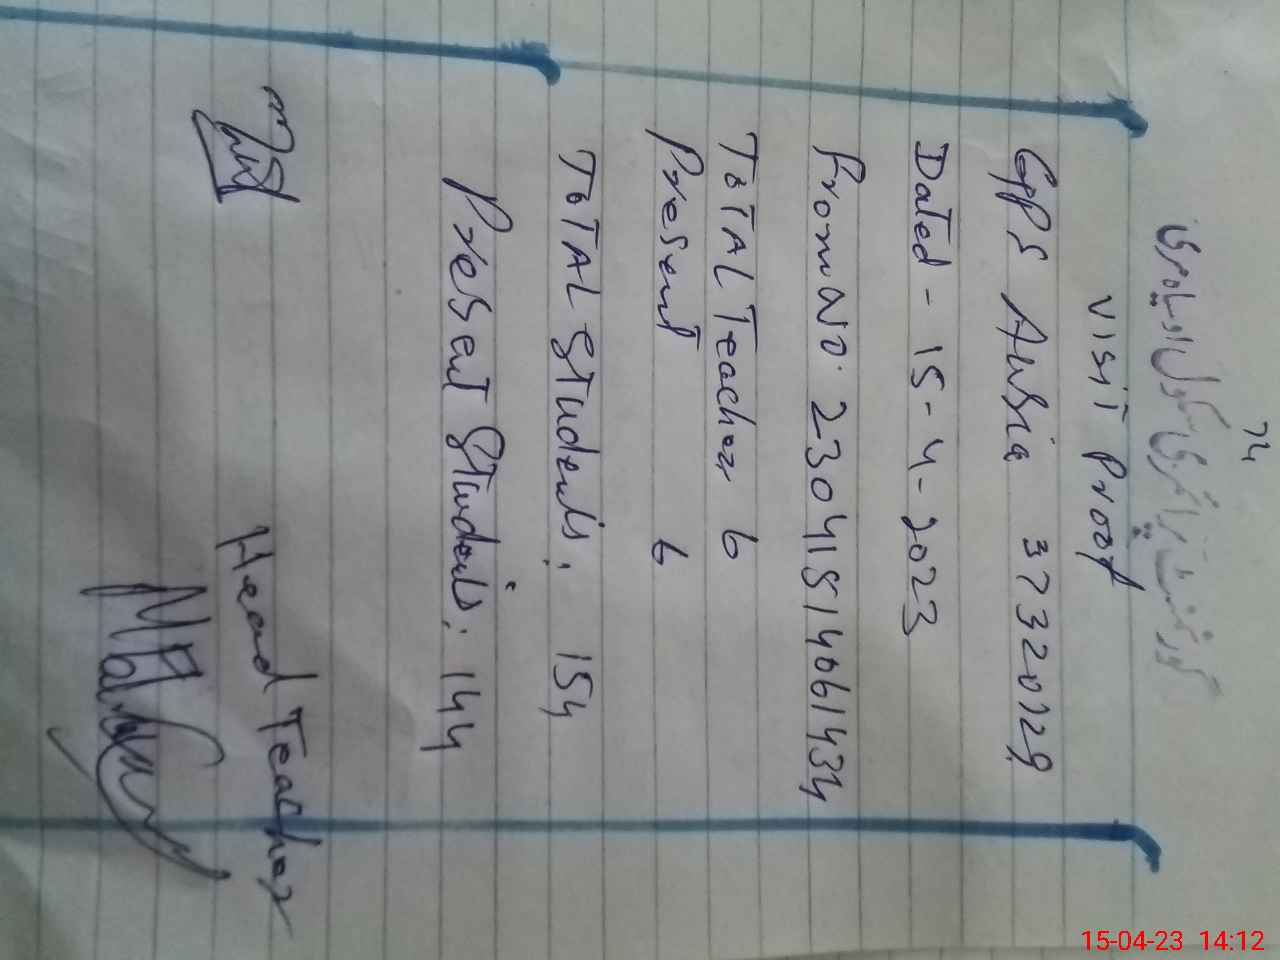 74
گورنمنٹ پرائمری سکول اوسیا مری
visit Proof
GPS Ausia 37320129
Dated - 15-4-2023
From No. 230415140661434
ToTAL Teacher 6
Present 6
ToTAL STudents: 154
Present STudents: 144
Head Teacher
15-04-23 14:12